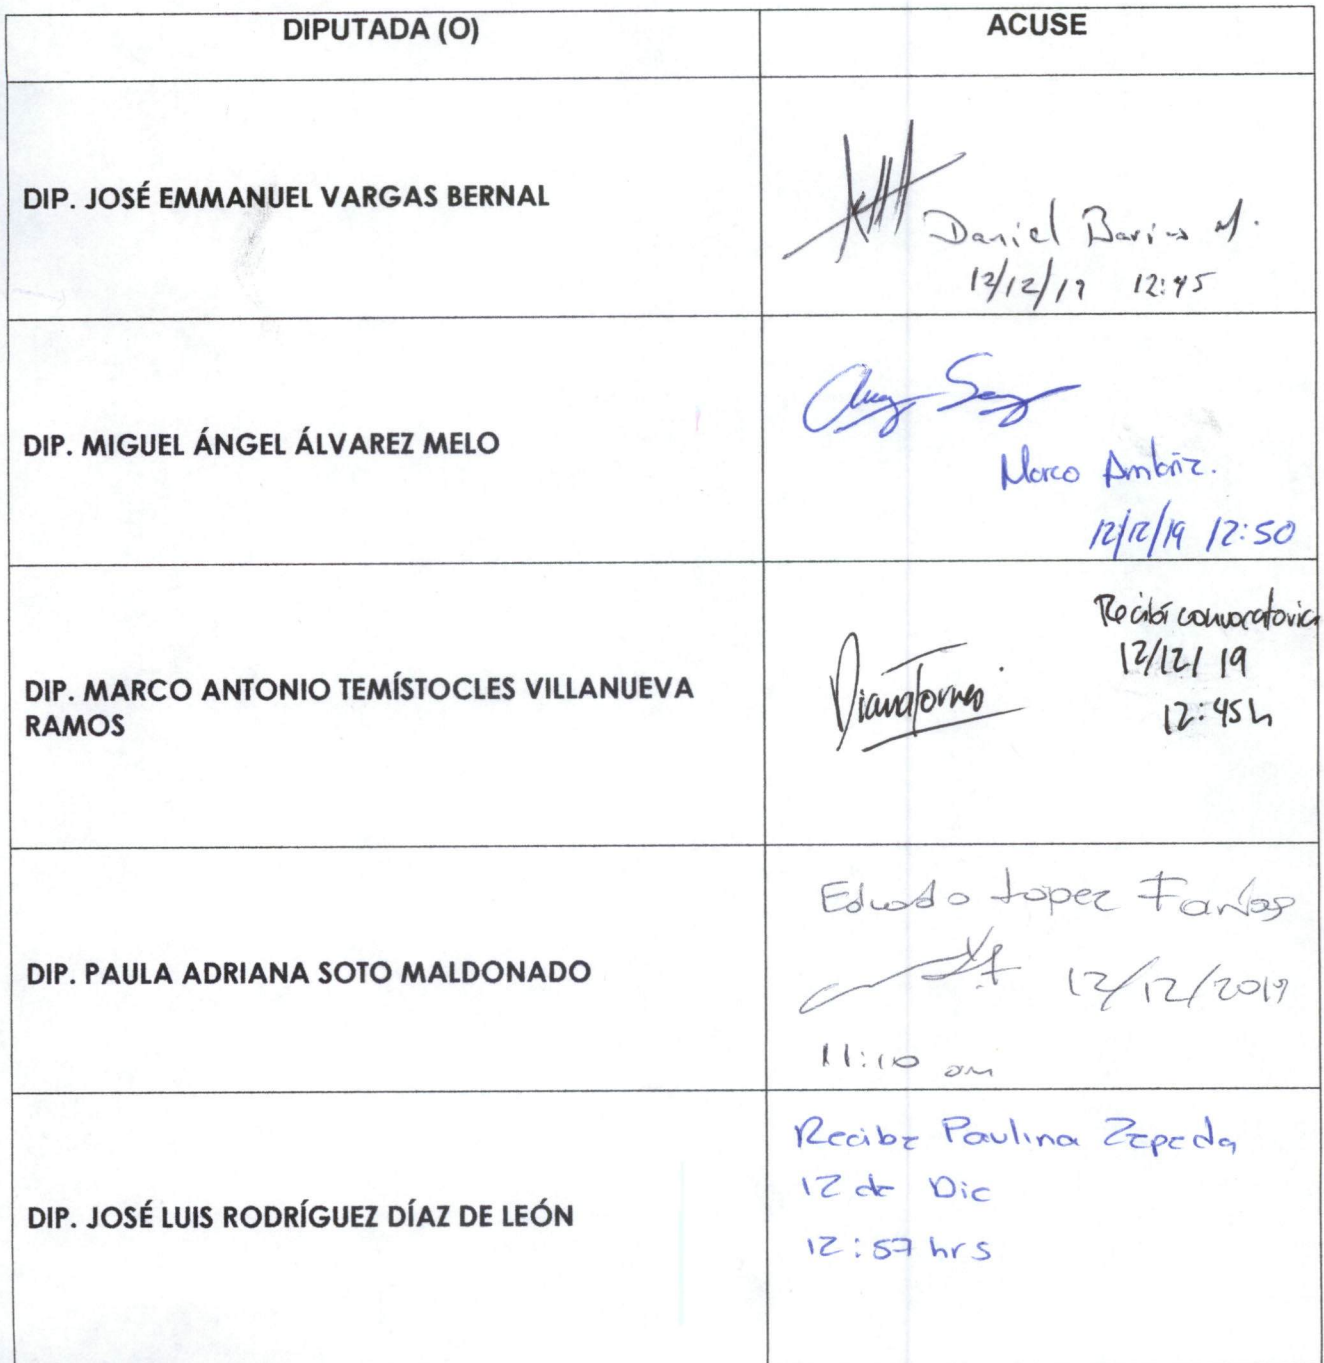 DIPUTADA (O)
ACUSE
DIP. JOSÉ EMMANUEL VARGAS BERNAL
Daniel
12/12/19 12:45
DIP. MIGUEL ÁNGEL ÁLVAREZ MELO
Marco Ambriz.
12/12/19 12:50
DIP. MARCO ANTONIO TEMÍSTOCLES VILLANUEVA
RAMOS
Recibí convocatoria
12/12/19
12:45h
Diana Torres
DIP. PAULA ADRIANA SOTO MALDONADO
Eduardo Lopez Farías
12/12/2019
11:10 am
DIP. JOSÉ LUIS RODRÍGUEZ DÍAZ DE LEÓN
Recibe Paulina Zepeda
12 de Dic
12:57 hrs